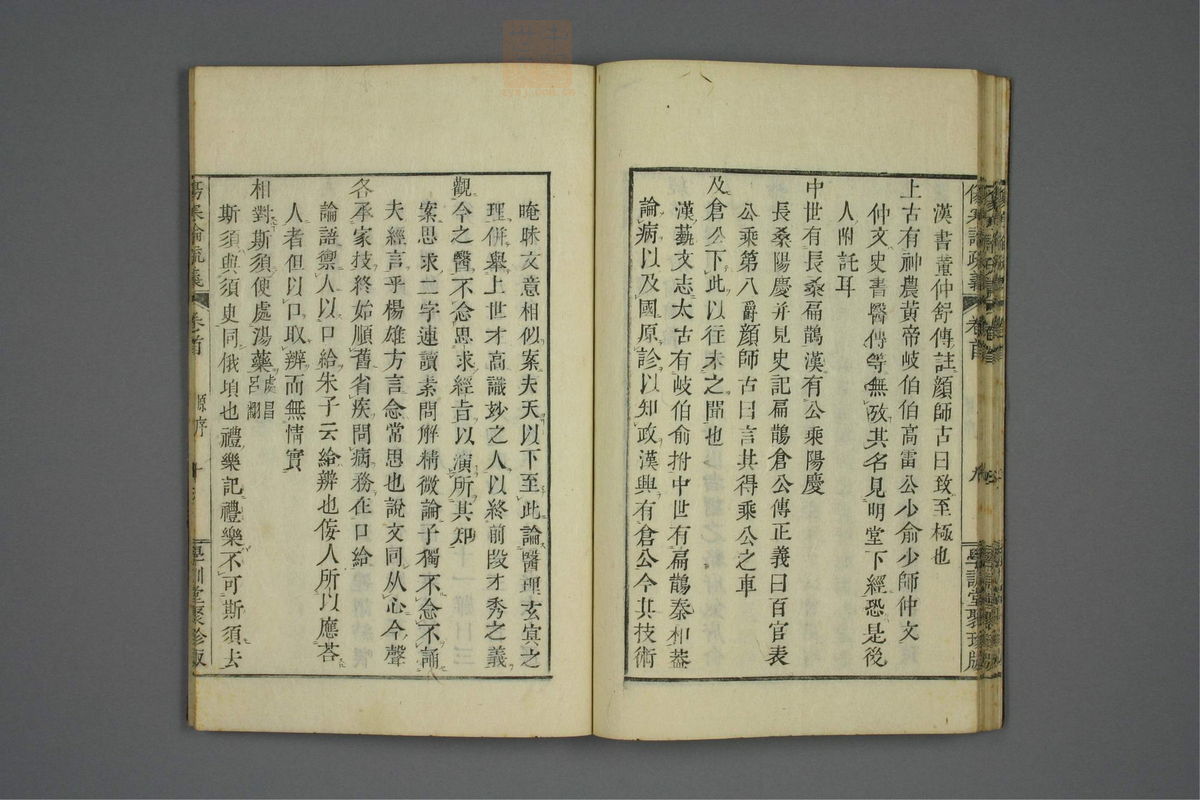 漢書董仲舒傳註顏師古曰致至極也
上古有神農黃帝岐伯伯高雷公少俞少師仲文
仲文史書醫傳等無攷其名見明堂下經恐是後
人附託耳
中世有長桑扁鵲漢有公乘陽慶
長桑陽慶并見史記扁鵲倉公傳正義曰百官表
公乘第八爵顏師古曰言其得乘公之車
及倉公下此以往未之聞也
漢藝文志太古有岐伯俞拊中世有扁鵲秦和蓋
論病以及國原診以知政漢興有倉公今其技術
晻昧文意相似案夫天以下至此論醫理玄寞之
理併舉上世才高識妙之人以終前段才秀之義
觀今之醫不念思求經旨以演所其知
案思求二字連讀素問解精微論子獨不念不誦
夫經言乎楊雄方言念常思也說文同从心今聲
各承家技終始順舊省疾問病務在口給
論語禦人以口給朱子云給辨也佞人所以應荅
人者但以口取辨而無情實
相對斯須便處湯藥處昌呂翻
斯須與須臾同俄頃也禮樂記禮樂不可斯須去
傷寒論疏義
卷首
原序
十
學訓堂聚珍版